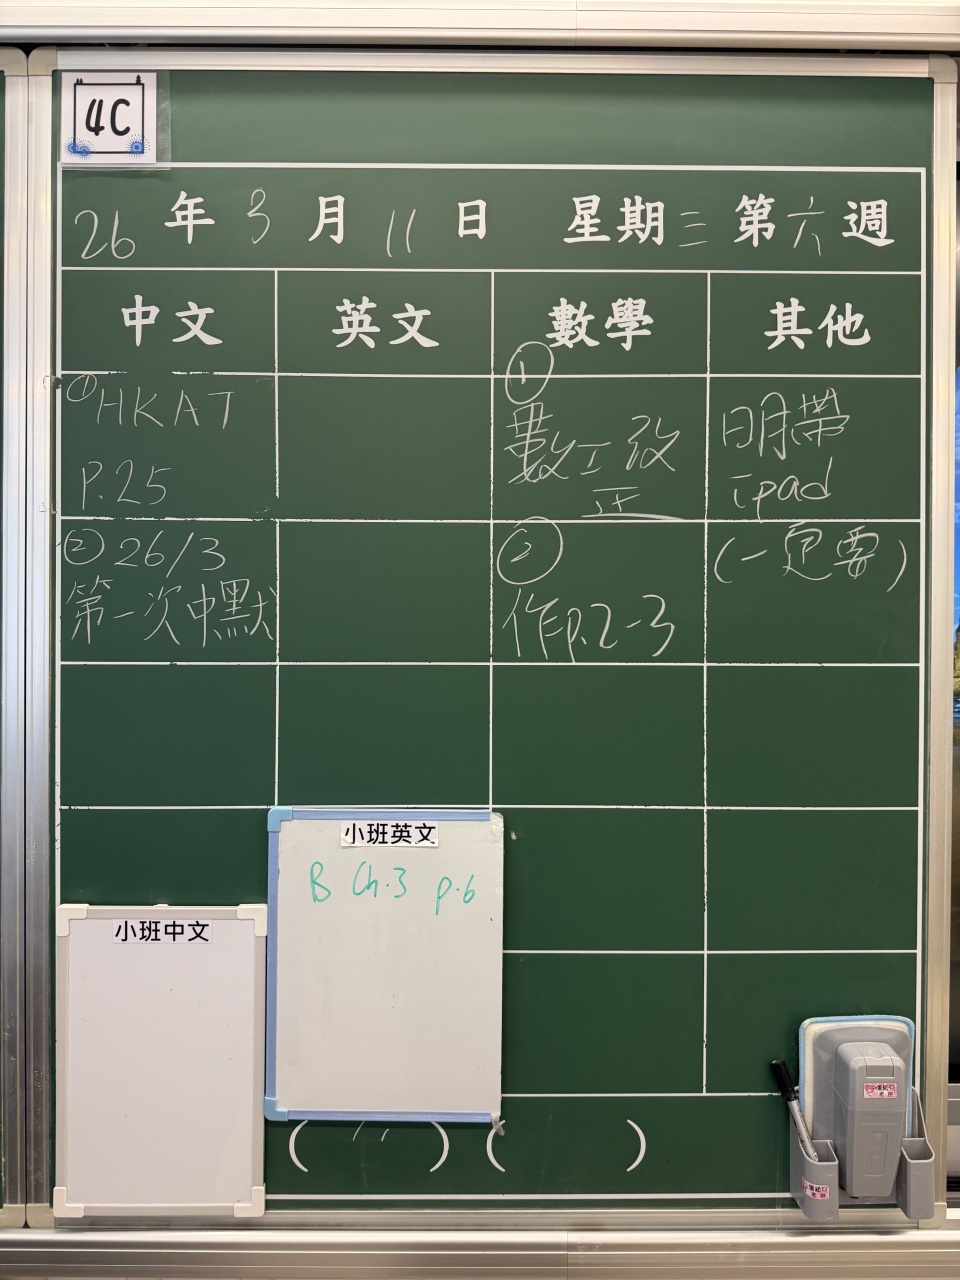 4C
26年3月11日 星期三 第六週
中文 英文 數學 其他
①HKAT
P.25
②26/3
第一次中默
①
數工改
正
②
作P.2-3
明帶
ipad
(一定要)
小班英文
B Ch.3 p.6
小班中文
( 〃 ) ( )